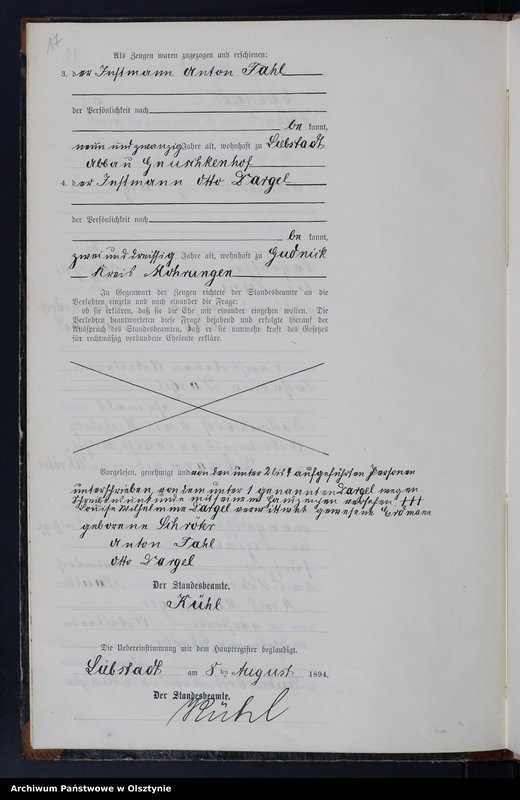 17
Als Zeugen waren zugezogen und erschienen:
3. der Instmann Anton Fahl
der Persönlichkeit nach
be kannt,
neun und zwanzig Jahre alt, wohnhaft zu Liebstadt
Abbau
4. der Instmann Otto Dargel
der Persönlichkeit nach
be kannt,
zwei und dreissig Jahre alt, wohnhaft zu Gudnick
Kreis Mohrungen
In Gegenwart der Zeugen richtete der Standesbeamte an die
Verlobten einzeln und nach einander die Frage:
ob sie erklären, daß sie die Ehe mit einander eingehen wollen. Die
Verlobten beantworteten diese Frage bejahend und erfolgte hierauf der
Ausspruch des Standesbeamten, daß er sie nunmehr kraft des Gesetzes
für rechtmäßig verbundene Eheleute erkläre.
Vorgelesen, genehmigt und von den unter 2 bis 4 aufgeführten Personen
unterschrieben, von dem unter 1 genannten Dargel wegen
Schreibensunkunde mit seinem Handzeichen versehen +++
Louise Wilhelmine Dargel verwitwet gewesene Erdmann
geborene Schröhr
Anton Fahl
Otto Dargel
Der Standesbeamte.
Kühl
Die Uebereinstimmung mit dem Hauptregister beglaubigt.
Liebstadt am 8 ten August 1894.
Der Standesbeamte.
Kühl
Archiwum Państwowe w Olsztynie